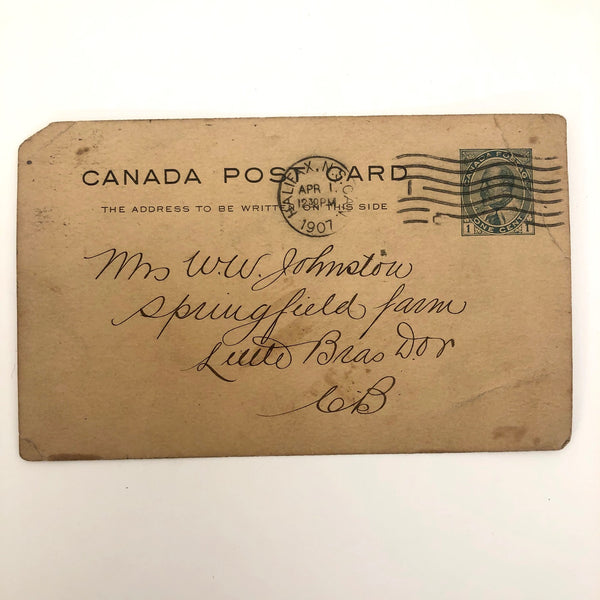 CANADA POST CARD
THE ADDRESS TO BE WRITTEN ON THIS SIDE
HALIFAX, N.S. CAN.
APR 1.
12:30PM
1907
CANADA POSTAGE
1 ONE CENT 1
Mrs W.W. Johnston
Springfield farm
Little Bras Dor
CB